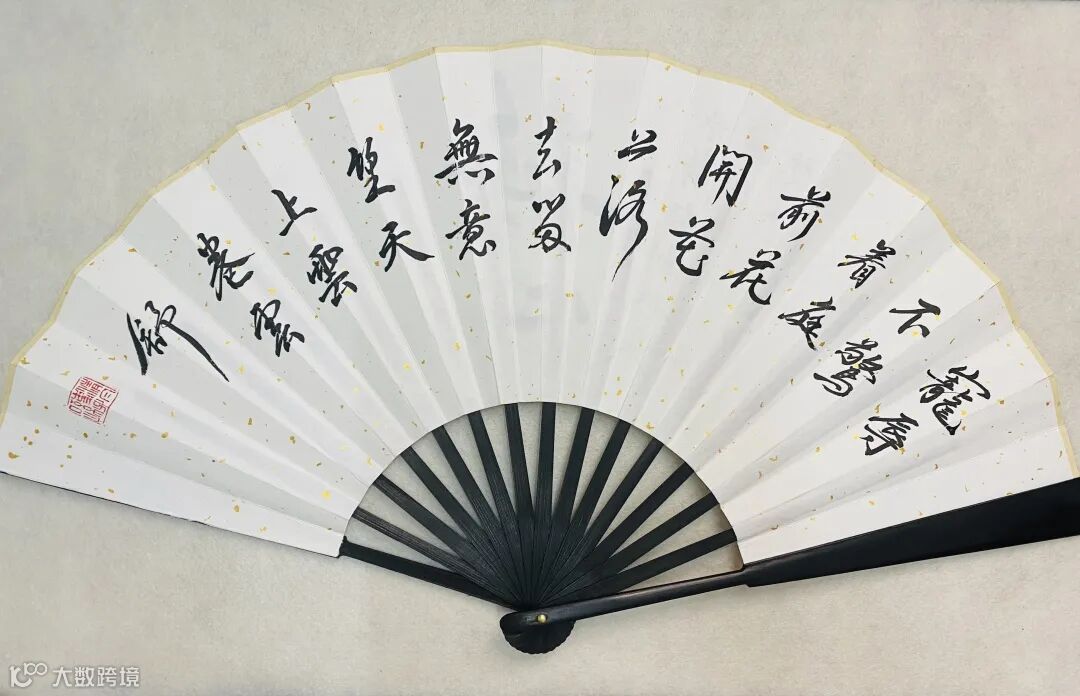 寵辱
不驚
看庭
前花
開花
落
去留
無意
望天
上雲
卷雲
舒
大数跨境